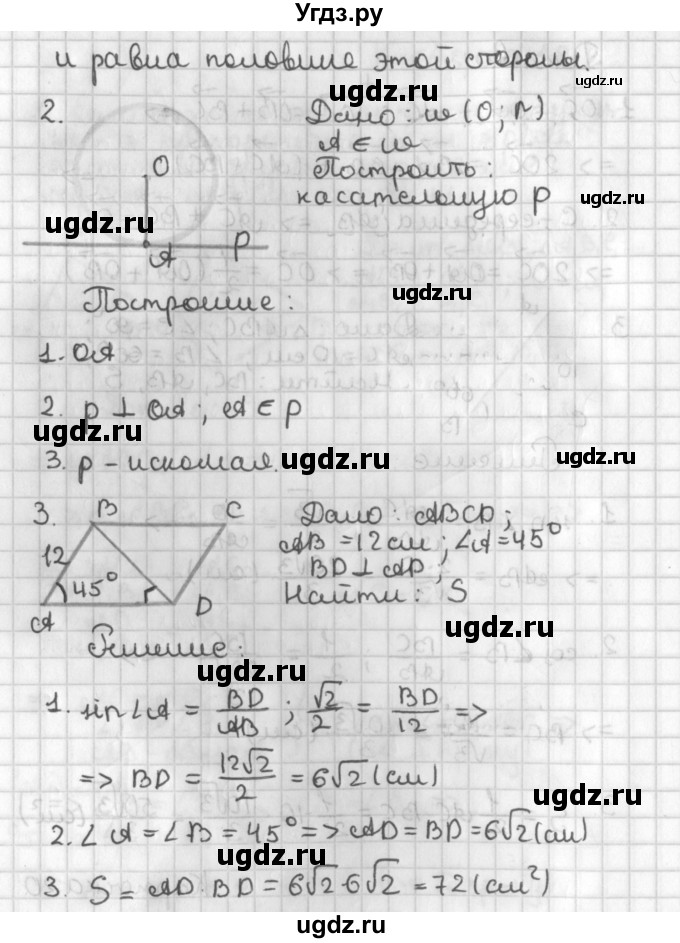 Угдз.ру
и равна половине этой стороны.
ugdz.ru ugdz.ru
2. Дано: w (O; r)
A ∈ w
O Построить:
касательную p ugdz.ru
ugdz.ru
A p
Построение: ugdz.ru
1. OA
2. p ⊥ OA; A ∈ p
ugdz.ru
3. p - искомая. ugdz.ru ugdz.ru
3. B C Дано: ABCD;
12 AB = 12 см; ∠A = 45°
45° BD ⊥ AD;
A D Найти: S
ugdz.ru
Решение:
ugdz.ru
1. sin∠A = BD/AB; √2/2 = BD/12 =>
=> BD = 12√2/2 = 6√2 (см)
ugdz.ru
2. ∠A = ∠B = 45° => AD = BD = 6√2 (см)
ugdz.ru
3. S = AD · BD = 6√2 · 6√2 = 72 (см²)
ugdz.ru
ugdz.ru